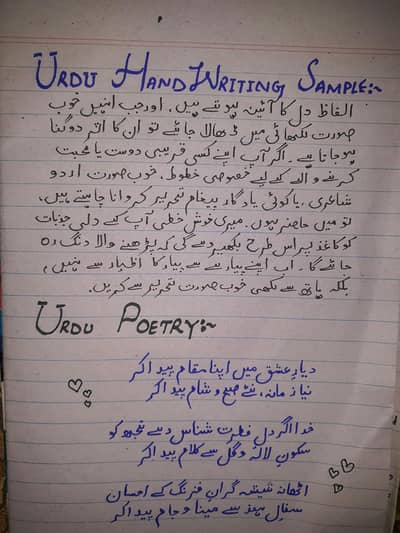 URDU HANDWRITING SAMPLE:~
الفاظ دل کا آئینہ ہوتے ہیں۔ اور جب انہیں خوب
صورت لکھائی میں ڈھالا جائے تو ان کا اثر دوگنا
ہو جاتا ہے۔ اگر آپ اپنے کسی قریبی دوست یا محبت
کرنے والے کے لیے خصوصی خطوط، خوب صورت اردو
شاعری، یا کوئی یادگار پیغام تحریر کروانا چاہتے ہیں،
تو میں حاضر ہوں۔ میری خوش خطی آپ کے دلی جذبات
کو کاغذ پر اس طرح بکھیر دے گی کہ پڑھنے والا دنگ رہ
جائے گا۔ اب اپنے پیارے سے پیار کا اظہار سے نہیں،
بلکہ ہاتھ سے لکھی خوب صورت تحریر سے کریں۔
URDU POETRY:~
دیارِ عشق میں اپنا مقام پیدا کر
نیا زمانہ، نئے صبح و شام پیدا کر
خدا اگر دلِ فطرت شناس دے تجھ کو
سکوتِ لالہ و گل سے کلام پیدا کر
اٹھا نہ شیشہ گرانِ فرنگ کے احسان
سفالِ ہند سے مینا و جام پیدا کر